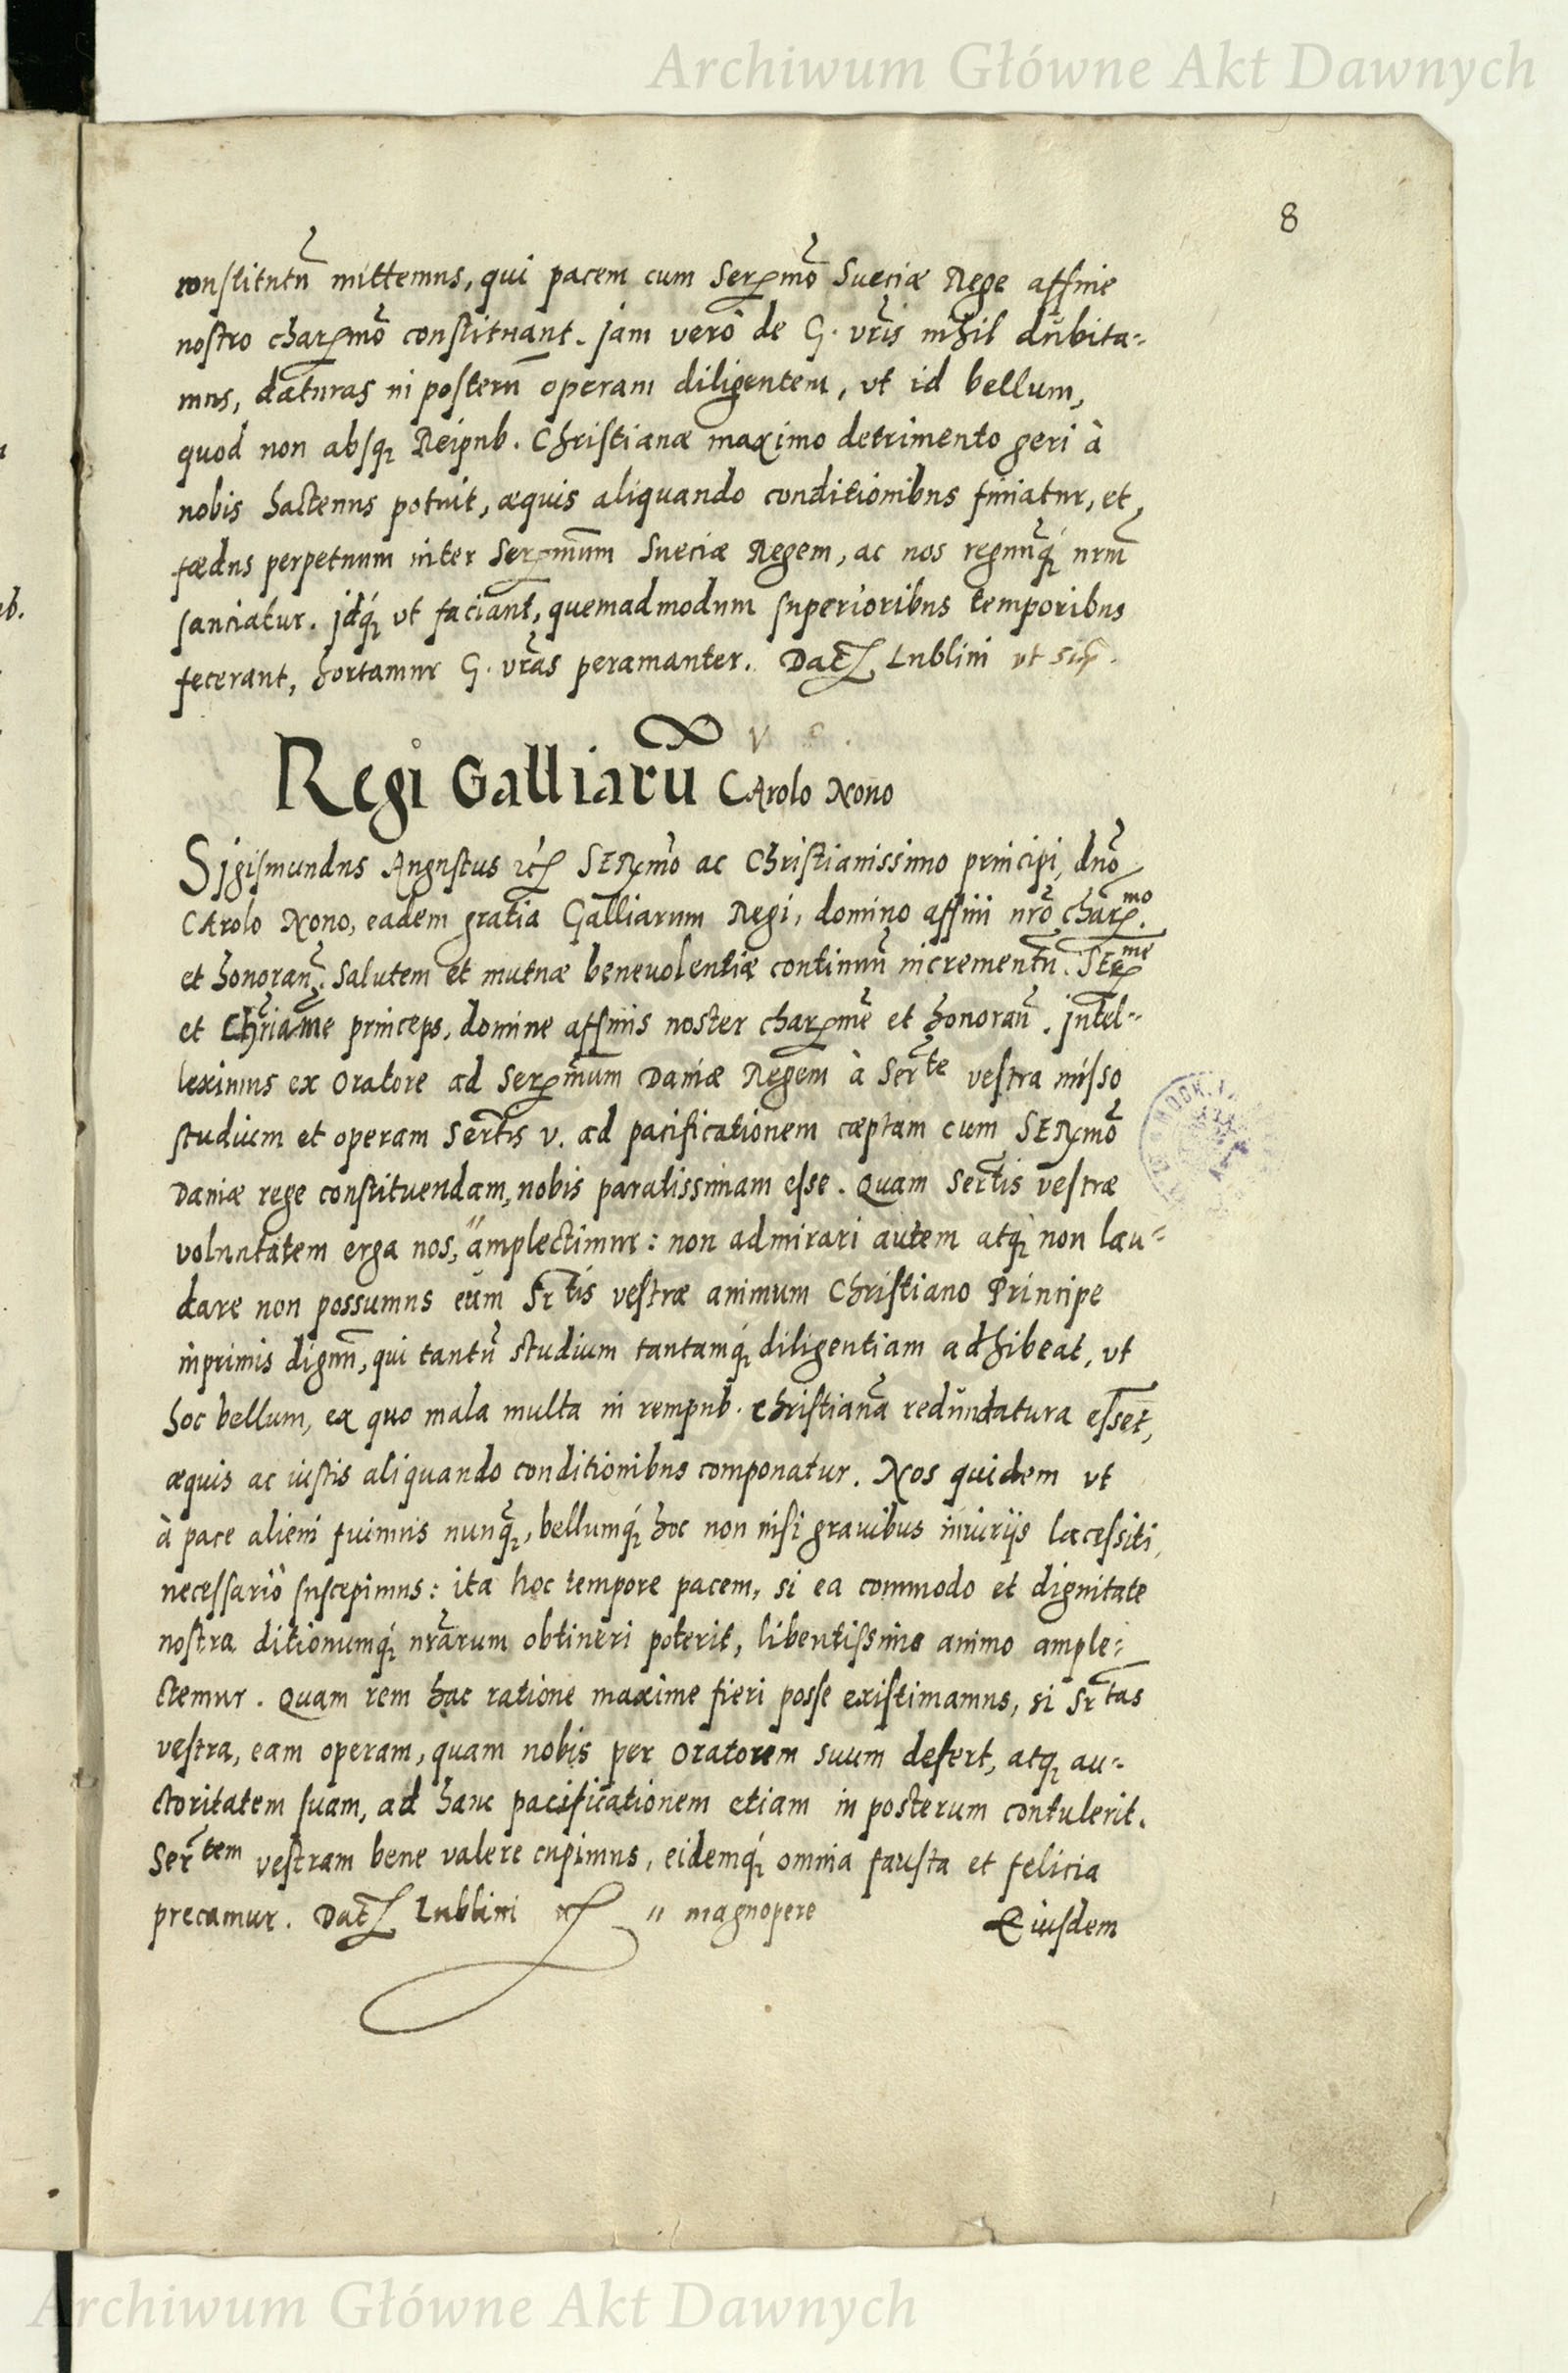 Archiwum Główne Akt Dawnych
8
constitutũ mittemus, qui pacem cum Serẽmo Sueciæ Rege affine
nostro charẽmo constituant. Jam verò de G. vr̃is nihil dubita-
mus, daturas in posterũ operam diligentem, vt id bellum,
quod non absq3 Reipub. Christianæ maximo detrimento geri à
nobis hactenus potuit, æquis aliquando conditionibus finiatur, et
fœdus perpetuum inter Serẽmum Sueciæ Regem, ac nos regnũq3 nr̃m
sanciatur. Jdq3 vt faciant, quemadmodum superioribus temporibus
fecerant, hortamur G. vr̃as peramanter. Dat̃ Lublini vt sup̃.
Regi Galliarũ CArolo Nono
Sigismundus Augustus etc̃ SERmõ ac Christianissimo principi, dnõ
CArolo Nono, eadem gratia Galliarum Regi, domino affini nrõ char.mo
et honoran̄. Salutem et mutuæ beneuolentiæ continuũ incrementũ. SERme
et Chr̃iãme princeps, domine affinis noster charẽme et honoran̄. Jntel-
leximus ex Oratore ad Serẽmum Daniæ Regem à Ser̃te vestra misso
studium et operam Ser̃tis v. ad pacificationem cœptam cum SERmõ
Daniæ rege constituendam, nobis paratissimam esse. Quam Ser̃tis vestræ
voluntatem erga nos, " amplectimur: non admirari autem atq3 non lau-
dare non possumus eum Sr̃tis vestræ animum Christiano Principe
inprimis dignũ, qui tantũ studium tantamq3 diligentiam adhibeat, vt
hoc bellum, ex quo mala multa in rempub. christianã redundatura essẽt,
æquis ac iustis aliquando conditionibus componatur. Nos quidem vt
à pace alieni fuimus nunq̃3, bellumq3 hoc non nisi grauibus iniurijs lacessiti,
necessariò suscepimus: ita hoc tempore pacem, si ea commodo et dignitate
nostra ditionumq3 nr̃arum obtineri poterit, libentissimo animo ample-
ctemur. Quam rem hac ratione maxime fieri posse existimamus, si Sr̃tas
vestra, eam operam, quam nobis per Oratorem suum defert, atq3 au-
ctoritatem suam, ad hanc pacificationem etiam in posterum contulerit.
Ser̃tem vestram bene valere cupimus, eidemq3 omnia fausta et felicia
precamur. Dat̃ Lublini etc̃ " magnopere Eiusdem
Archiwum Główne Akt Dawnych